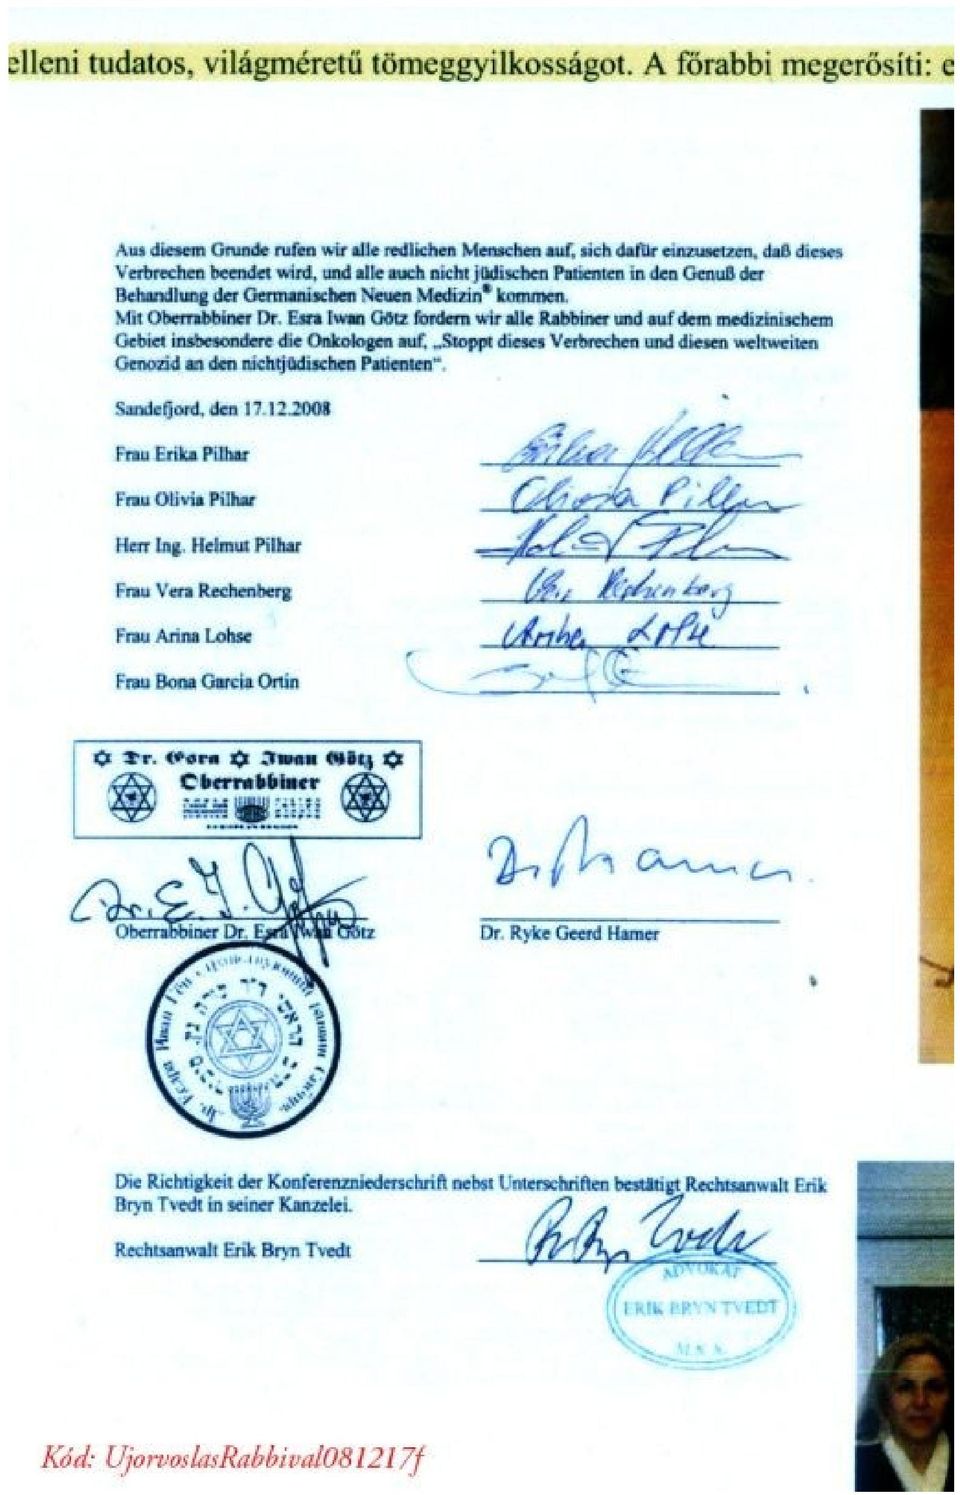 elleni tudatos, világméretű tömeggyilkosságot. A főrabbi megerősíti: e
Aus diesem Grunde rufen wir alle redlichen Menschen auf, sich dafür einzusetzen, daß dieses
Verbrechen beendet wird, und alle auch nicht jüdischen Patienten in den Genuß der
Behandlung der Germanischen Neuen Medizin® kommen.
Mit Oberrabbiner Dr. Esra Iwan Götz fordern wir alle Rabbiner und auf dem medizinischem
Gebiet insbesondere die Onkologen auf, „Stoppt dieses Verbrechen und diesen weltweiten
Genozid an den nichtjüdischen Patienten“.
Sandefjord, den 17.12.2008
Frau Erika Pilhar
Frau Olivia Pilhar
Olivia Pilhar
Herr Ing. Helmut Pilhar
Frau Vera Rechenberg
Vera Rechenberg
Frau Arina Lohse
Arina Lohse
Frau Bona Garcia Ortin
Dr. Esra Iwan Götz
Oberrabbiner
Dr. E. I. Götz
Dr. Hamer
Oberrabbiner Dr. Esra Iwan Götz
Dr. Ryke Geerd Hamer
Die Richtigkeit der Konferenzniederschrift nebst Unterschriften bestätigt Rechtsanwalt Erik
Bryn Tvedt in seiner Kanzelei.
Rechtsanwalt Erik Bryn Tvedt
ADVOKAT
ERIK BRYN TVEDT
Kód: UjorvoslasRabbival081217f